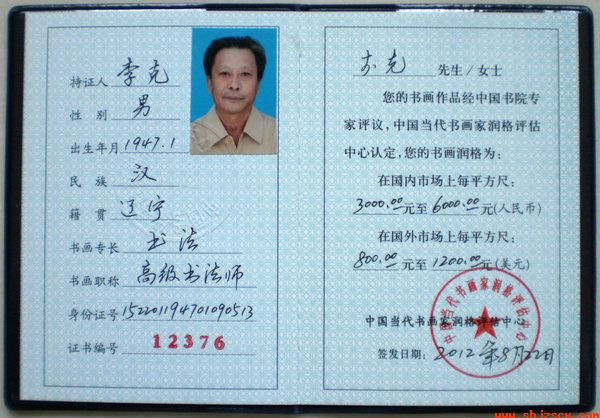 持证人 李克
性 别 男
出生年月 1947.1
民 族 汉
籍 贯 辽宁
书画专长 书法
书画职称 高级书法师
身份证号 152201194701090513
证书编号 12376
李克 先生/女士
您的书画作品经中国书院专
家评议，中国当代书画家润格评估
中心认定，您的书画润格为：
在国内市场上每平方尺：
3000.00元至6000.00元(人民币)
在国外市场上每平方尺：
800.00元至1200.00元(美元)
中国当代书画家润格评估中心
中国当代书画家润格评估中心
签发日期：2012年8月22日
www.shjzscw.com